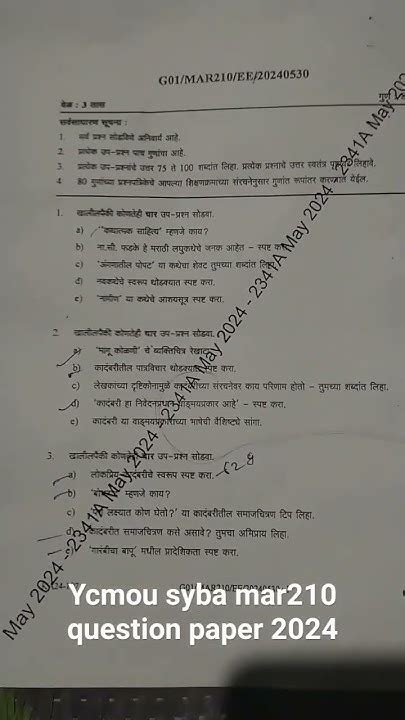 G01/MAR210/EE/20240530
वेळ : 3 तास
गुण
सर्वसाधारण सूचना :
1. सर्व प्रश्न सोडविणे अनिवार्य आहे.
2. प्रत्येक उप-प्रश्न पाच गुणांचा आहे.
3. प्रत्येक उप-प्रश्नांचे उत्तर 75 ते 100 शब्दांत लिहा. प्रत्येक प्रश्नाचे उत्तर स्वतंत्र पृष्ठावर लिहावे.
4. 80 गुणांच्या प्रश्नपत्रिकेचे आपल्या शिक्षणक्रमाच्या संरचनेनुसार गुणांत रूपांतर करण्यात येईल.
1. खालीलपैकी कोणतेही चार उप-प्रश्न सोडवा.
a) 'कथात्मक साहित्य' म्हणजे काय?
b) ना.सी. फडके हे मराठी लघुकथेचे जनक आहेत – स्पष्ट करा.
c) 'अंगणातील पोपट' या कथेचा शेवट तुमच्या शब्दांत लिहा.
d) नवकथेचे स्वरूप थोडक्यात स्पष्ट करा.
e) 'नामीण' या कथेचे आशयसूत्र स्पष्ट करा.
2. खालीलपैकी कोणतेही चार उप-प्रश्न सोडवा.
a) कोळणी' चे व्यक्तिचित्र रेखाटा
b) कादंबरीतील पात्रविचार थोडक्यात स्पष्ट करा.
c) लेखकांच्या दृष्टिकोनामुळे कादंबरीच्या संरचनेवर काय परिणाम होतो – तुमच्या शब्दांत लिहा.
d) 'कादंबरी हा निवेदनप्रधान वाङ्मयप्रकार आहे' – स्पष्ट करा.
e) कादंबरी या वाङ्मयप्रकाराच्या भाषेची वैशिष्ट्ये सांगा.
3. खालीलपैकी कोणतेही चार उप-प्रश्न सोडवा.
a) लोकप्रिय कादंबरीचे स्वरूप स्पष्ट करा.
b) म्हणजे काय?
c) लक्ष्यात कोण घेतो?' या कादंबरीतील समाजचित्रण टिप लिहा.
d) कादंबरीत समाजचित्रण कसे असावे? तुमचा अभिप्राय लिहा.
e) 'गारंबीचा बापू' मधील प्रादेशिकता स्पष्ट करा.
G01/MAR210/EE/20240530
May 2024 - 2341A May 2024 - 234 A May 2024 - 2341A May 2024 - 2341A May 202
Ycmou syba mar210
question paper 2024